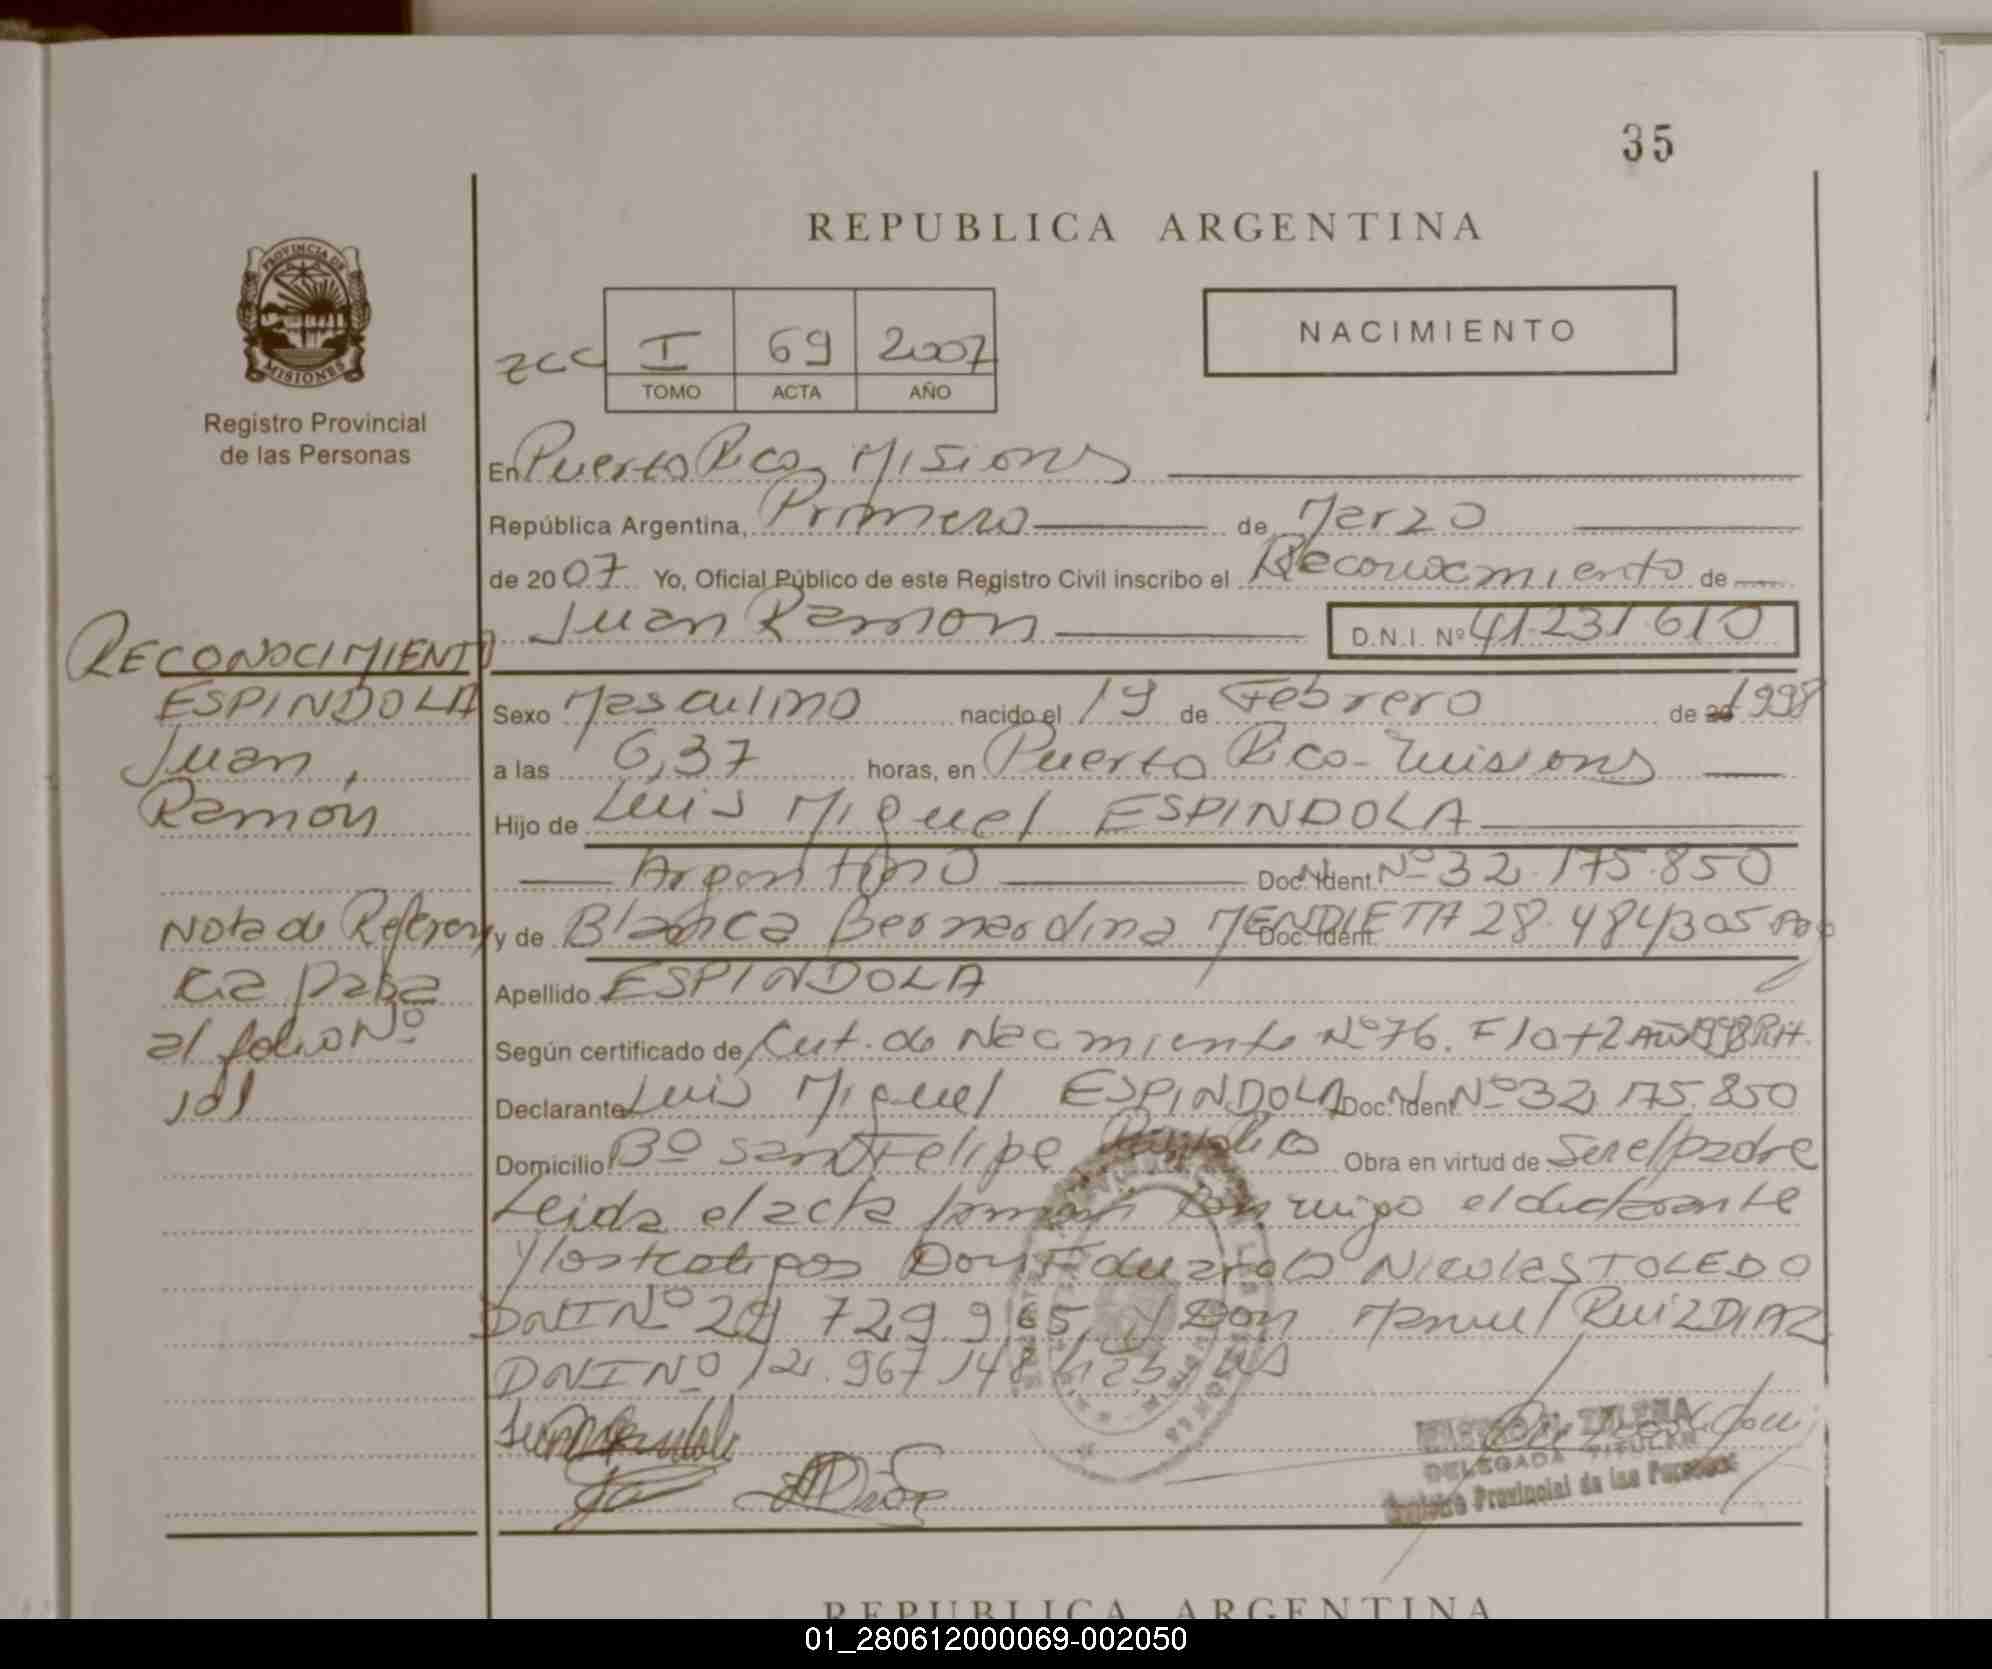 35
REPUBLICA ARGENTINA
PROVINCIA DE
MISIONES
Registro Provincial
de las Personas
zcc I 69 2007
TOMO ACTA AÑO
NACIMIENTO
En Puerto Rico, Misiones
República Argentina, Primero de Marzo
de 2007 Yo, Oficial Público de este Registro Civil inscribo el Reconocimiento de
Juan Ramon D.N.I. Nº 41.231.610
RECONOCIMIENTO
ESPINDOLA
Juan,
Ramón
Nota de Referen
cia pasa
al folio Nº
101
Sexo Masculino nacido el 19 de Febrero de 1998
a las 6,37 horas, en Puerto Rico - Misiones
Hijo de Luis Miguel ESPINDOLA
Argentino Doc. Ident. Nº 32.175.850
y de Blanca Bernardina MENDIETA Doc. Ident. 28.484305
Apellido ESPINDOLA
Según certificado de Cert. de Nacimiento Nº 76. F 10 t 2 Año 1998 P.R.
Declarante Luis Miguel ESPINDOLA Doc. Ident. Nº 32.175.850
Domicilio Bº San Felipe Puerto Rico Obra en virtud de Ser el padre
Leida el acta firman conmigo el declarante
y los testigos Don Eduardo Nicolas TOLEDO
DNI Nº 29 729 965, y Don Manuel RUIZ DIAZ
DNI Nº 12.967.148
DELEGADA TITULAR
Registro Provincial de las Personas
REPUBLICA ARGENTINA
01_280612000069-002050